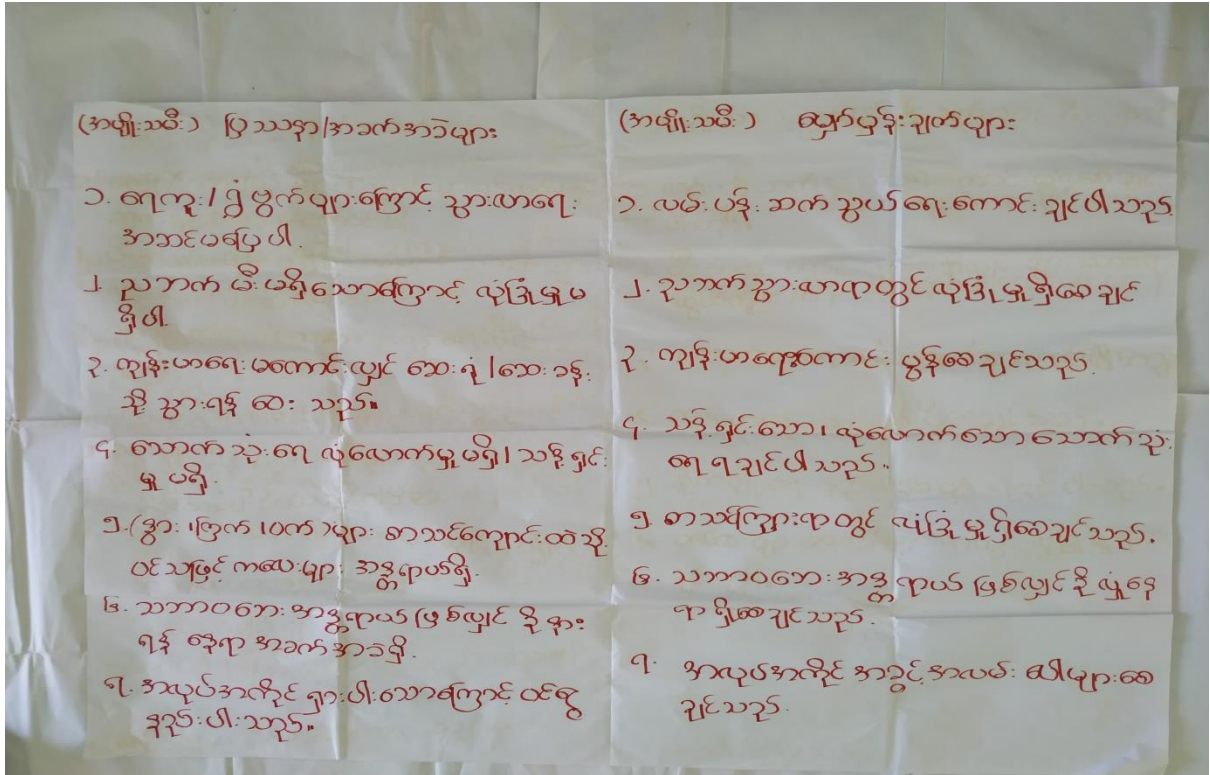 (အမျိုးသမီး) ပြဿနာ/အခက်အခဲများ
၁. ရေကူး / ရွှံ့ဗွက်များကြောင့် သွားလာရေး
အဆင်မပြေပါ.
၂. ညဘက် မီးမရှိသောကြောင့် လုံခြုံမှုမ
ရှိပါ.
၃. ကျန်းမာရေး မကောင်းလျှင် ဆေးရုံ/ဆေးခန်း
သို့ သွားရန် ဝေး သည်။
၄. သောက်သုံးရေ လုံလောက်မှုမရှိ၊ သန့်ရှင်း
မှု မရှိ.
၅. (နွား၊ ကြက်၊ ဝက်) များ စာသင်ကျောင်းထဲသို့
ဝင်သဖြင့် ကလေးများ အန္တရာယ်ရှိ.
၆. သဘာဝဘေးအန္တရာယ် ဖြစ်လျှင် ခိုနား
ရန် နေရာ အခက်အခဲရှိ.
၇. အလုပ်အကိုင် ရှားပါးသောကြောင့် ဝင်ငွေ
နည်းပါးသည်။
(အမျိုးသမီး) မျှော်မှန်းချက်များ
၁. လမ်းပန်းဆက်သွယ်ရေးကောင်းချင်ပါသည်.
၂. ညဘက်သွားလာရာတွင် လုံခြုံမှုရှိစေချင်
၃. ကျန်းမာရေးကောင်းမွန်စေချင်သည်.
၄. သန့်ရှင်းသော၊ လုံလောက်သော သောက်သုံး
ရေ ရချင်ပါသည်။
၅. စာသင်ကြားရာတွင် လုံခြုံမှုရှိစေချင်သည်.
၆. သဘာဝဘေးအန္တရာယ် ဖြစ်လျှင် ခိုလှုံနေ
ရာ ရှိစေချင်သည်.
၇. အလုပ်အကိုင် အခွင့်အလမ်း ပေါများစေ
ချင်သည်.